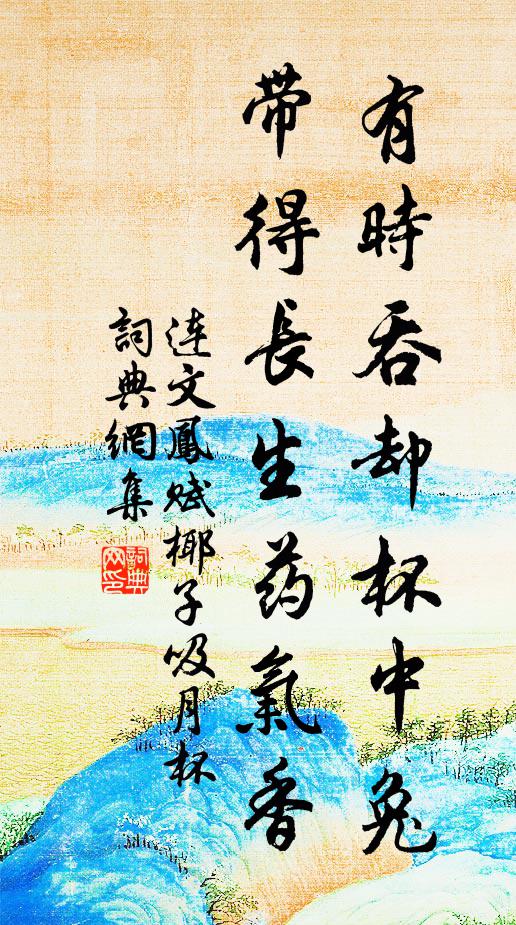 有時吞却杯中兔
带得長生药氣香
连文鳳賦椰子吸月杯
詞典網集
詞典網印